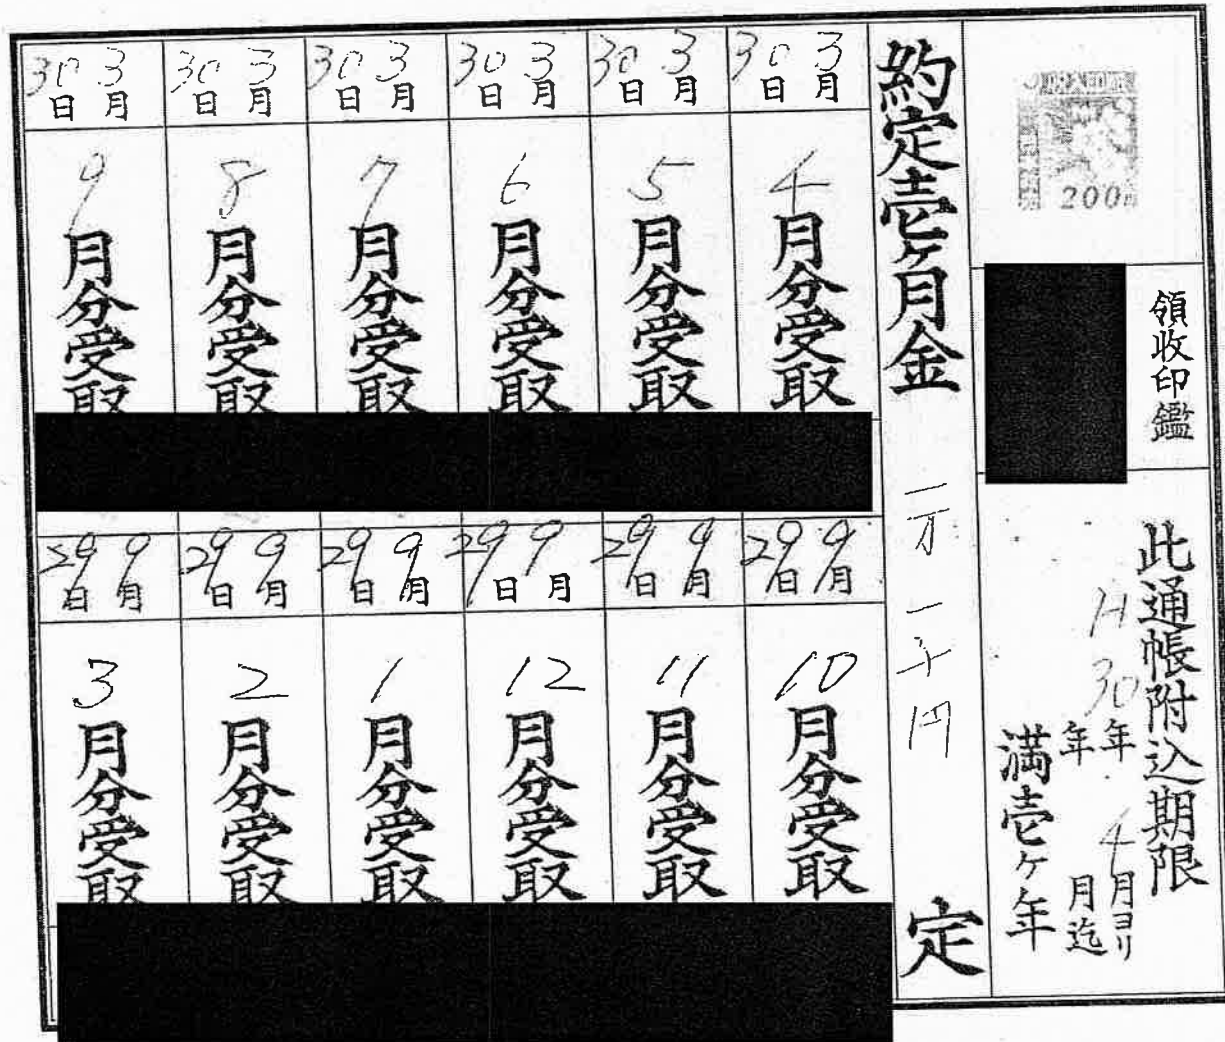 収入印紙
200円
領收印鑑
此通帳附込期限
H30年4月ヨリ
年 月迄
満壱ケ年
約定壱ケ月金 一万一千円 定
3月30日
4月分受取
3月30日
5月分受取
3月30日
6月分受取
3月30日
7月分受取
3月30日
8月分受取
3月30日
9月分受取
9月29日
10月分受取
9月29日
11月分受取
9月29日
12月分受取
9月29日
1月分受取
9月29日
2月分受取
9月29日
3月分受取